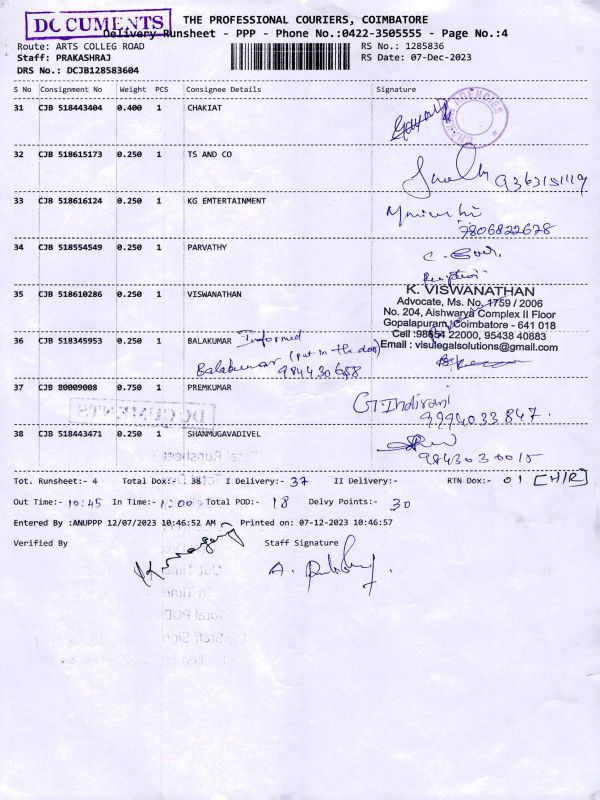 DOCUMENTS
THE PROFESSIONAL COURIERS, COIMBATORE
Delivery Runsheet - PPP - Phone No.:0422-3505555 - Page No.:4
Route: ARTS COLLEG ROAD
RS No.: 1285836
Staff: PRAKASHRAJ
RS Date: 07-Dec-2023
DRS No.: DCJB128583604
S No Consignment No Weight PCS Consignee Details Signature
31 CJB 518443404 0.400 1 CHAKIAT
AGENCIES
32 CJB 518615173 0.250 1 TS AND CO
33 CJB 518616124 0.250 1 KG EMTERTAINMENT
7806822678
34 CJB 518554549 0.250 1 PARVATHY
35 CJB 518610286 0.250 1 VISWANATHAN
K. VISWANATHAN
Advocate, Ms. No. 1759 / 2006
No. 204, Aishwarya Complex II Floor
Gopalapuram, Coimbatore - 641 018
Cell :98654 22000, 95438 40883
Email : visulegalsolutions@gmail.com
36 CJB 518345953 0.250 1 BALAKUMAR Informed
Balakumar (put in the door)
37 CJB 80009008 0.750 1 PREMKUMAR
G Indirani
9994033847.
DOCUMENTS
38 CJB 518443471 0.250 1 SHANMUGAVADIVEL
9843030015
Tot. Runsheet:- 4 Total Dox:- 38 I Delivery:- 37 II Delivery:- RTN Dox:- 01 [H/R]
Out Time:- 10:45 In Time:- 1:00 Total POD:- 18 Delvy Points:- 30
Entered By :ANUPPP 12/07/2023 10:46:52 AM Printed on: 07-12-2023 10:46:57
Verified By Staff Signature